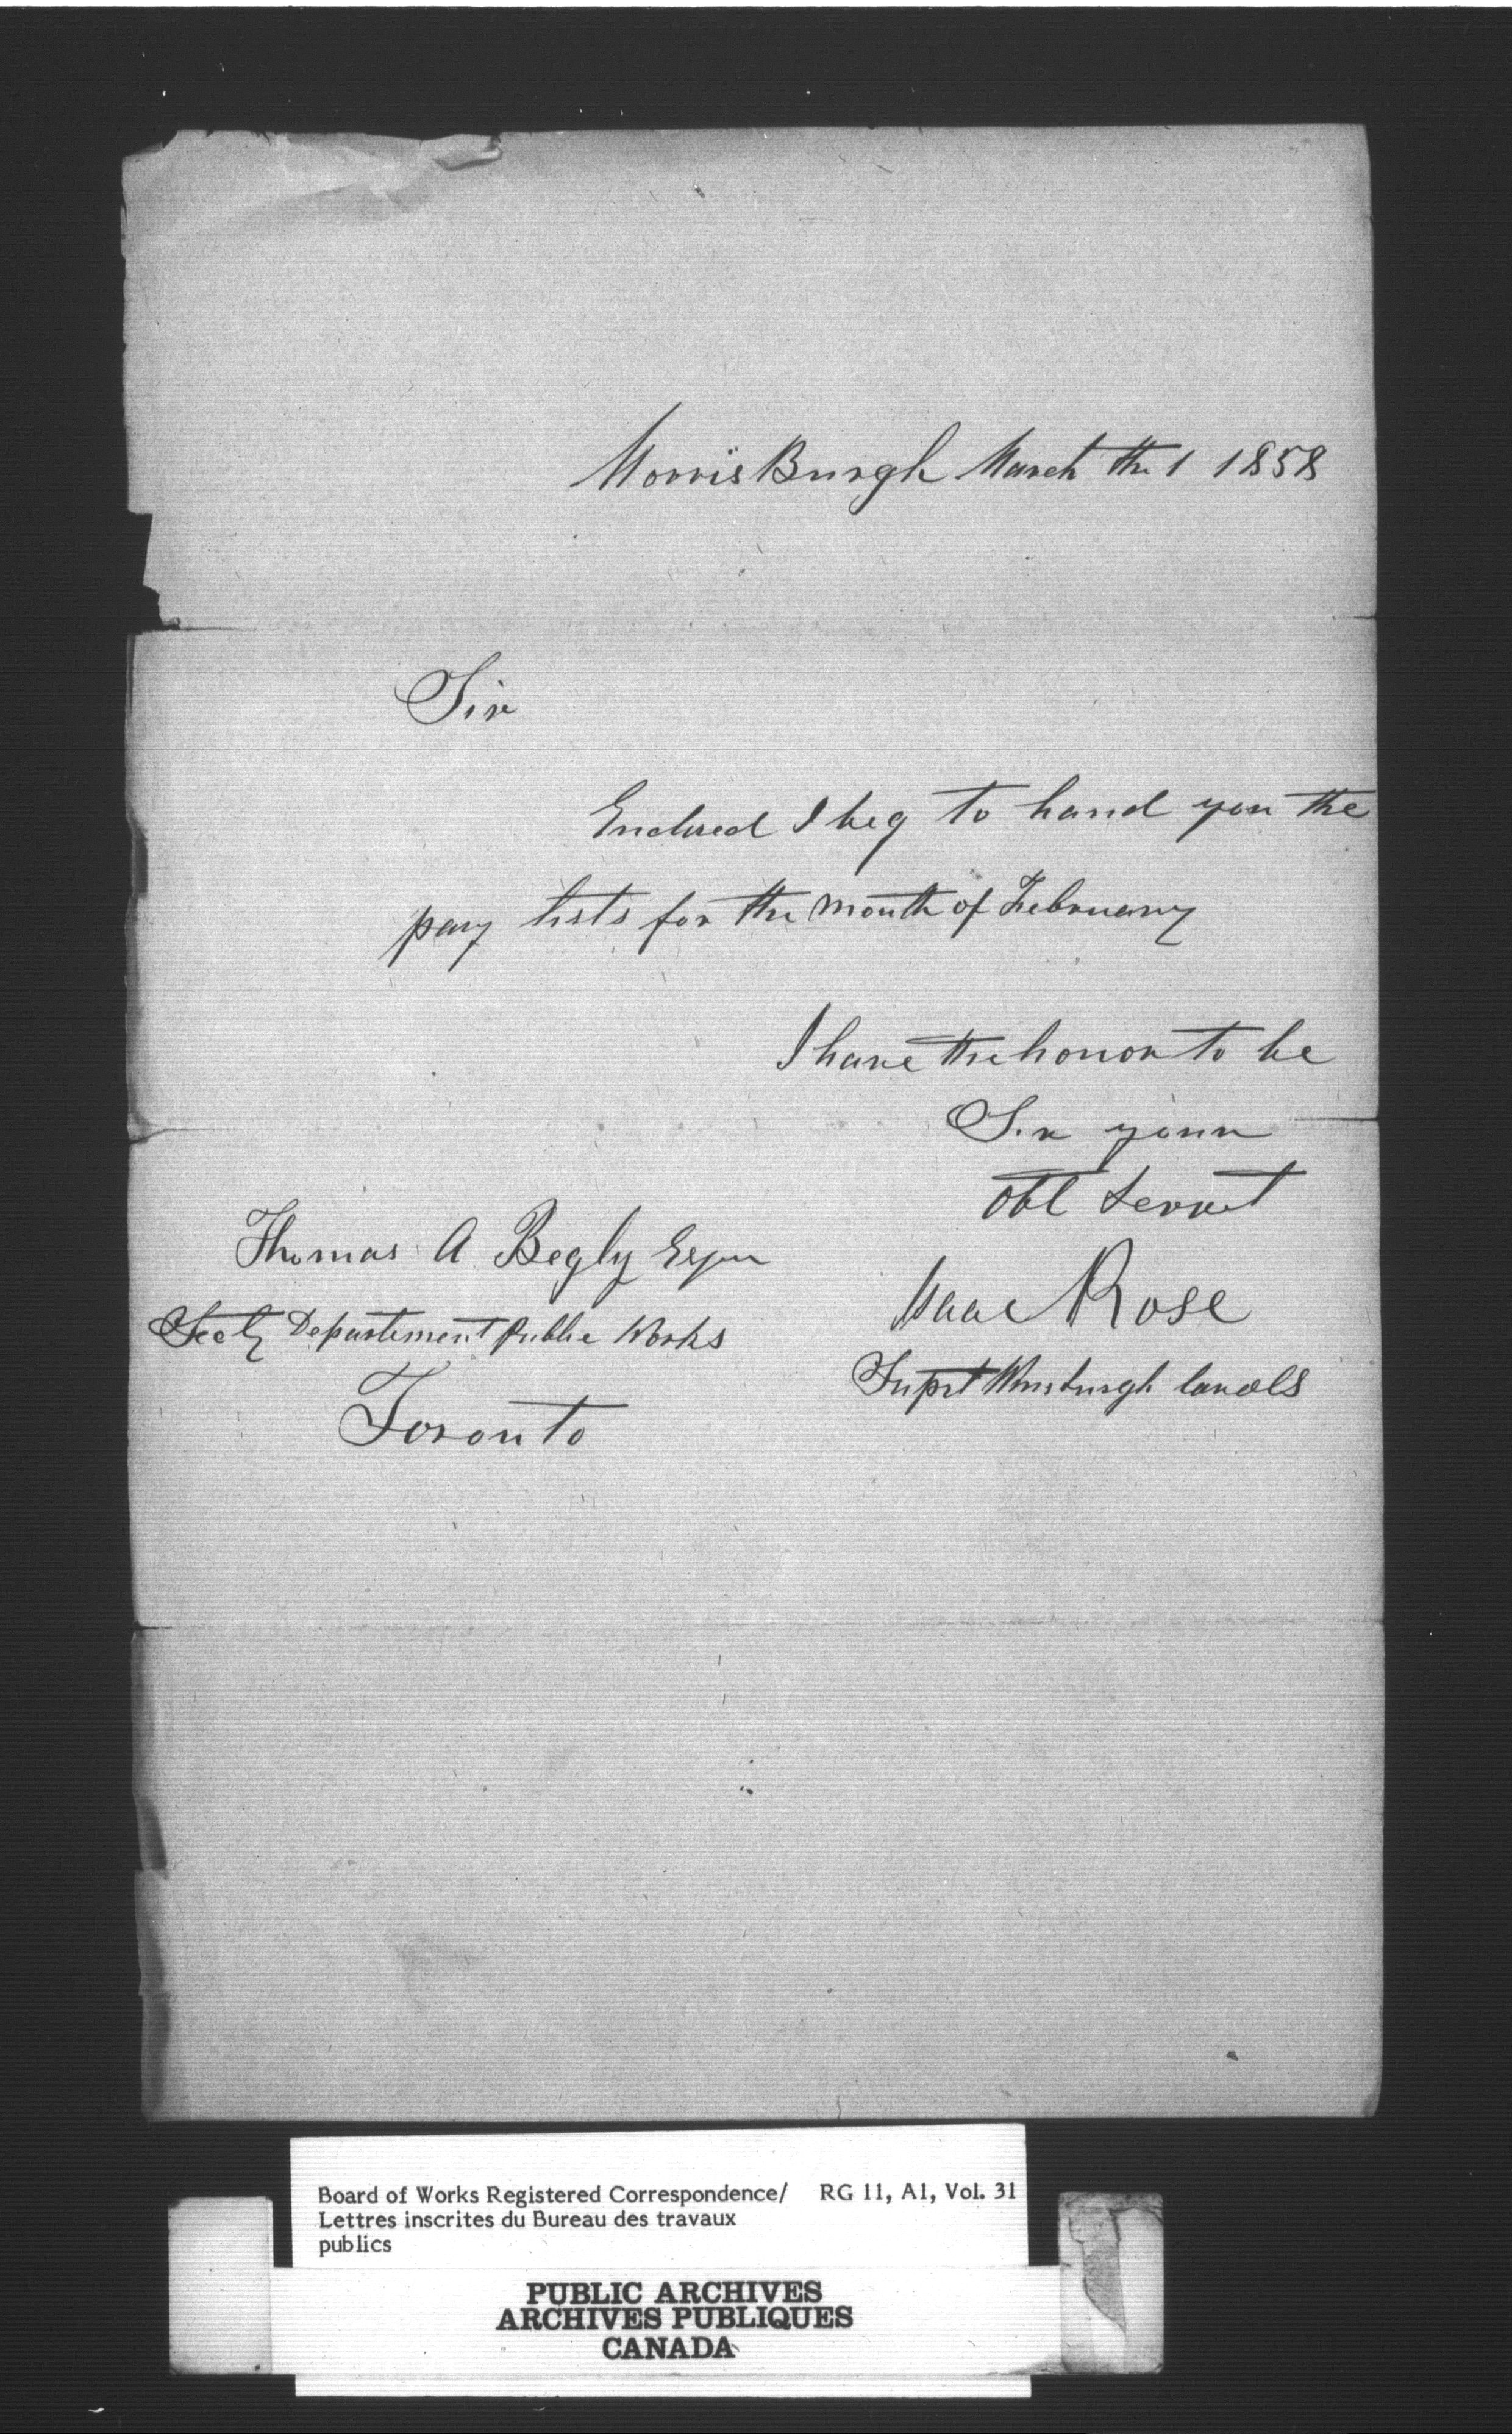 MorrisBurgh March the 1 1858
Sir
Enclosed I beg to hand you the
pay lists for the month of February
I have the honor to be
Sir your
Obt Servet
Isaac Rose
Supet Wmsburgh Canals
Thomas A Begly Esqur
Secty Department Public Works
Toronto
Board of Works Registered Correspondence/ RG 11, A1, Vol. 31
Lettres inscrites du Bureau des travaux
publics
PUBLIC ARCHIVES
ARCHIVES PUBLIQUES
CANADA